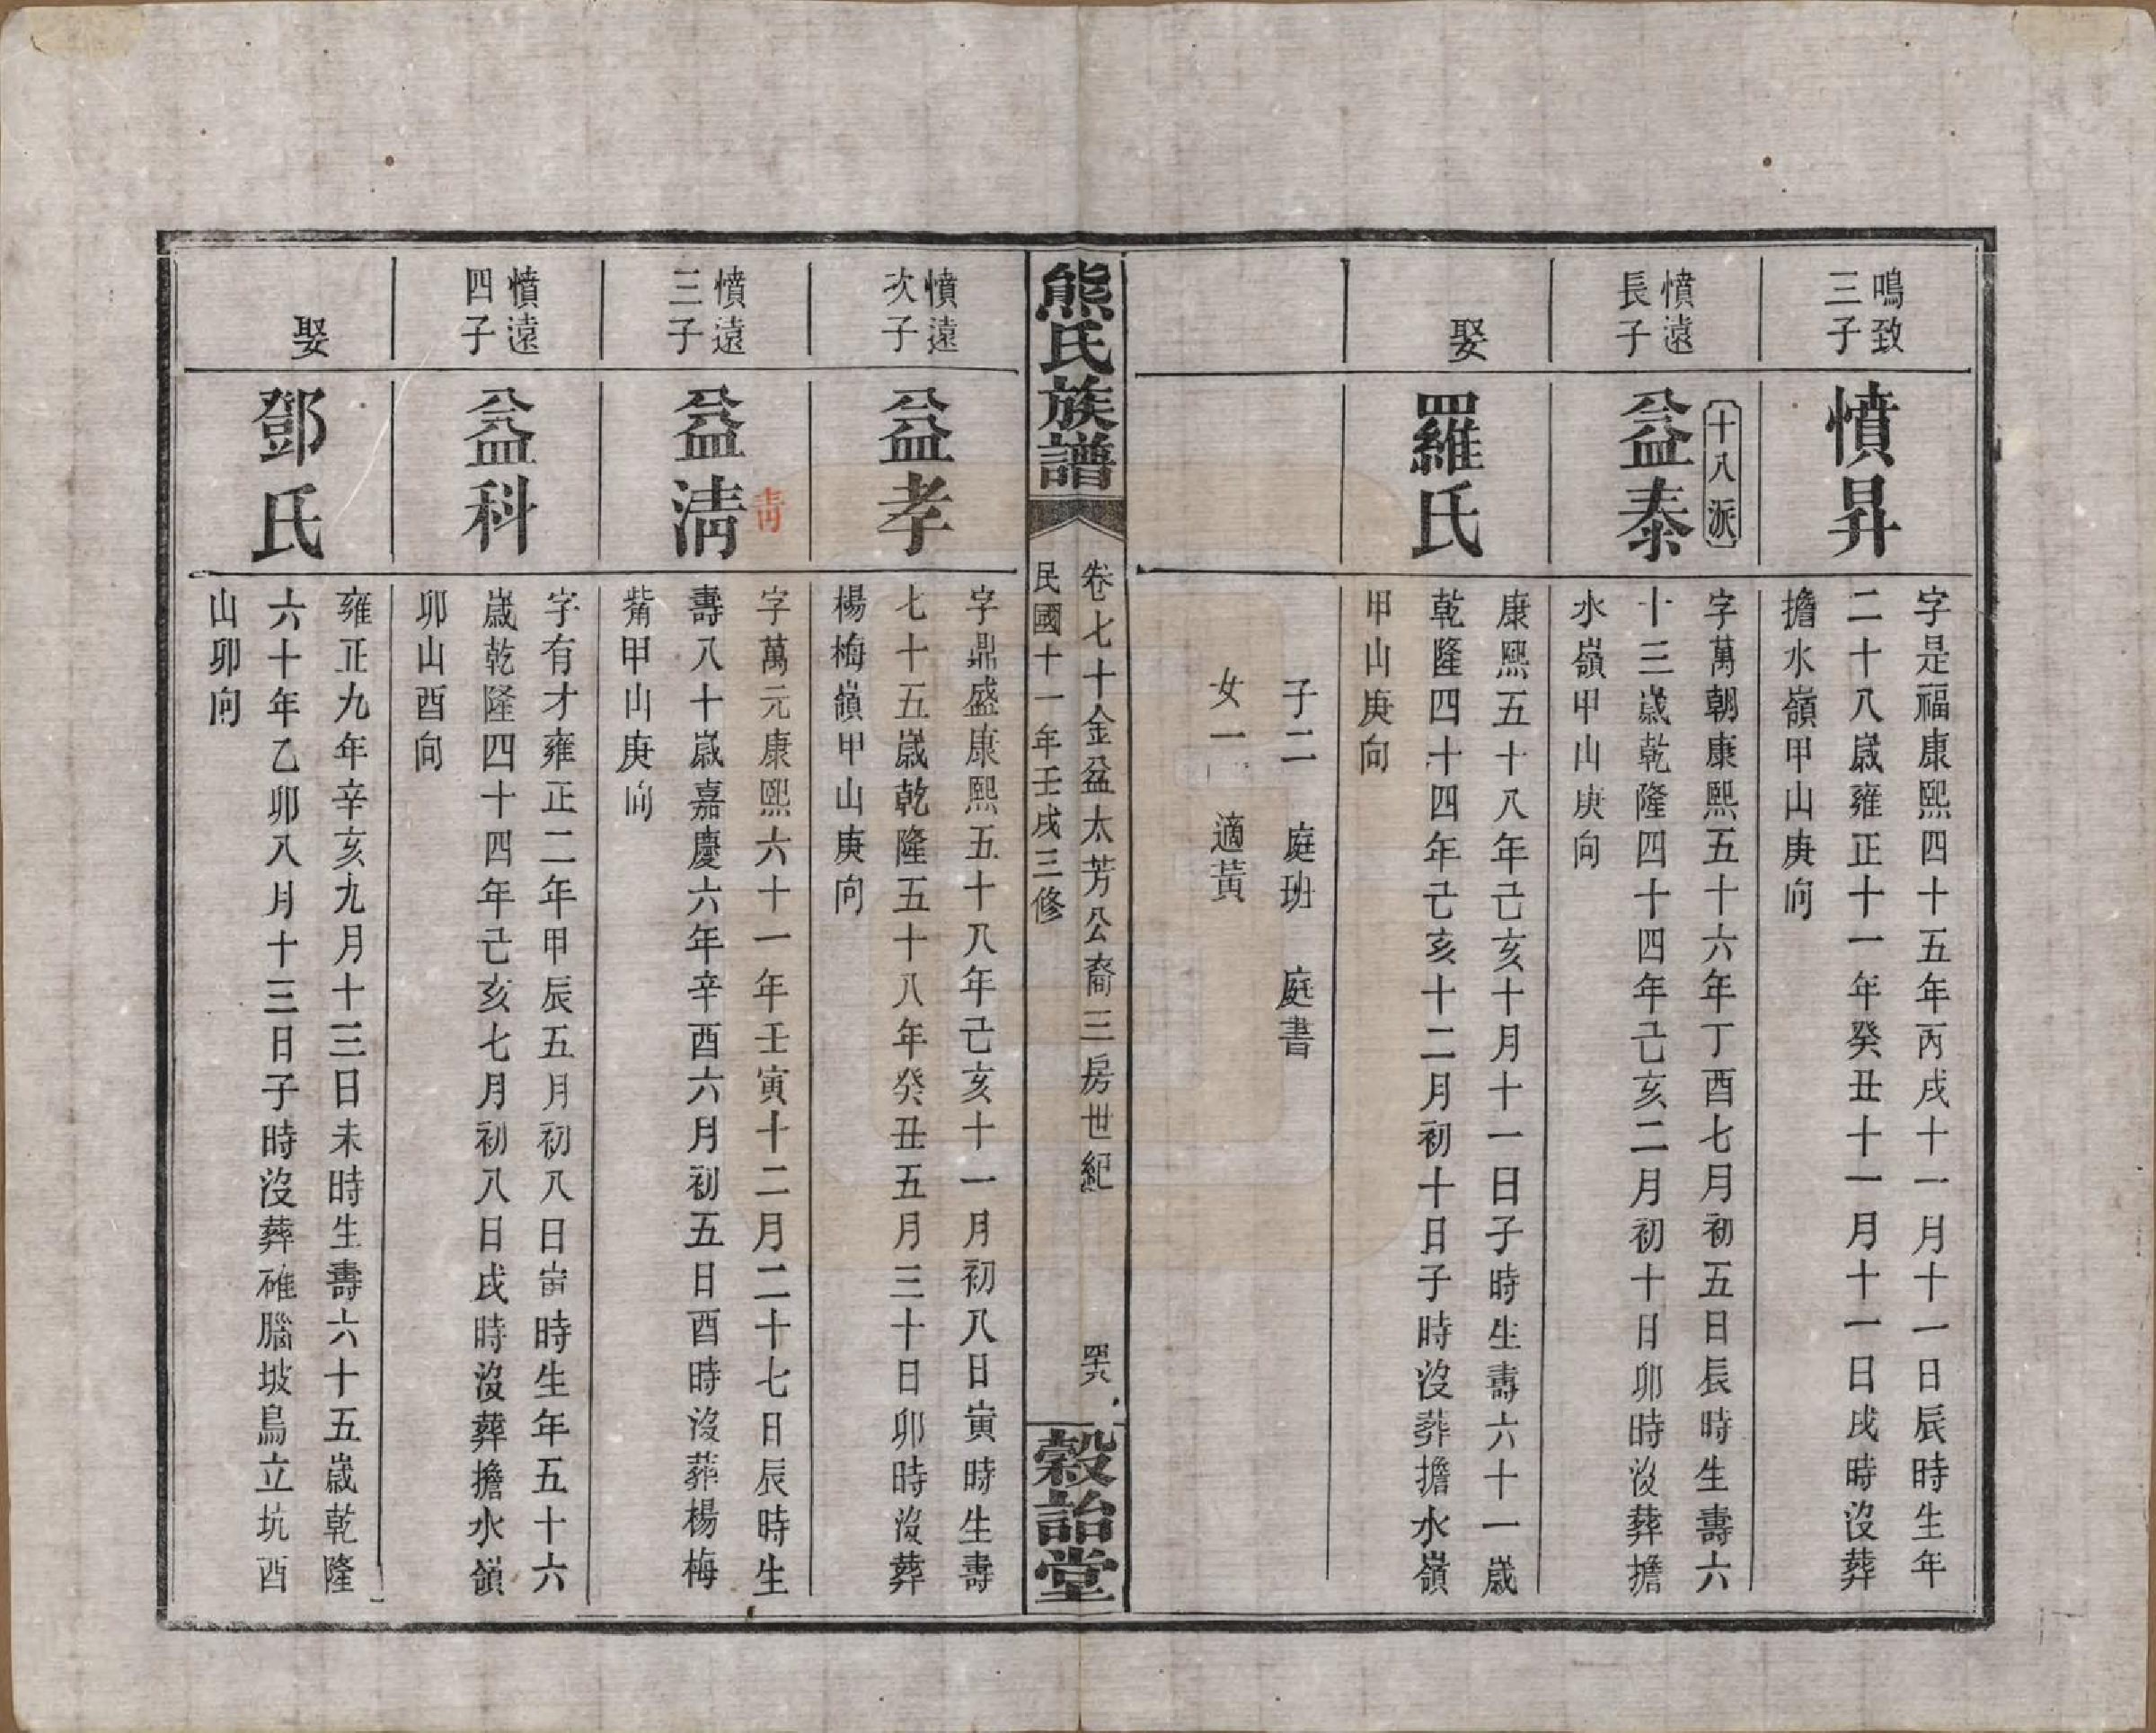 鳴致
三子
憤昇
字是福康熙四十五年丙戌十一月十一日辰時生年
二十八歲雍正十一年癸丑十一月十一日戌時沒葬
擔水嶺甲山庚向
憤遠
長子
十八派
益泰
字萬朝康熙五十六年丁酉七月初五日辰時生壽六
十三歲乾隆四十四年己亥二月初十日卯時沒葬擔
水嶺甲山庚向
娶
羅氏
康熙五十八年己亥十月十一日子時生壽六十一歲
乾隆四十四年己亥十二月初十日子時沒葬擔水嶺
甲山庚向
子二 庭班 庭書
女一 適黃
熊氏族譜
卷七十金盆太芳公裔三房世紀
民國十一年壬戌三修
穀詒堂
憤遠
次子
益孝
字鼎盛康熙五十八年己亥十一月初八日寅時生壽
七十五歲乾隆五十八年癸丑五月三十日卯時沒葬
楊梅嶺甲山庚向
憤遠
三子
益淸
青
字萬元康熙六十一年壬寅十二月二十七日辰時生
壽八十歲嘉慶六年辛酉六月初五日酉時沒葬楊梅
甲山庚向
憤遠
四子
益科
字有才雍正二年甲辰五月初八日寅時生年五十六
歲乾隆四十四年己亥七月初八日戌時沒葬擔水嶺
卯山酉向
娶
鄧氏
雍正九年辛亥九月十三日未時生壽六十五歲乾隆
六十年乙卯八月十三日子時沒葬碓腦坡鳥立坑酉
山卯向